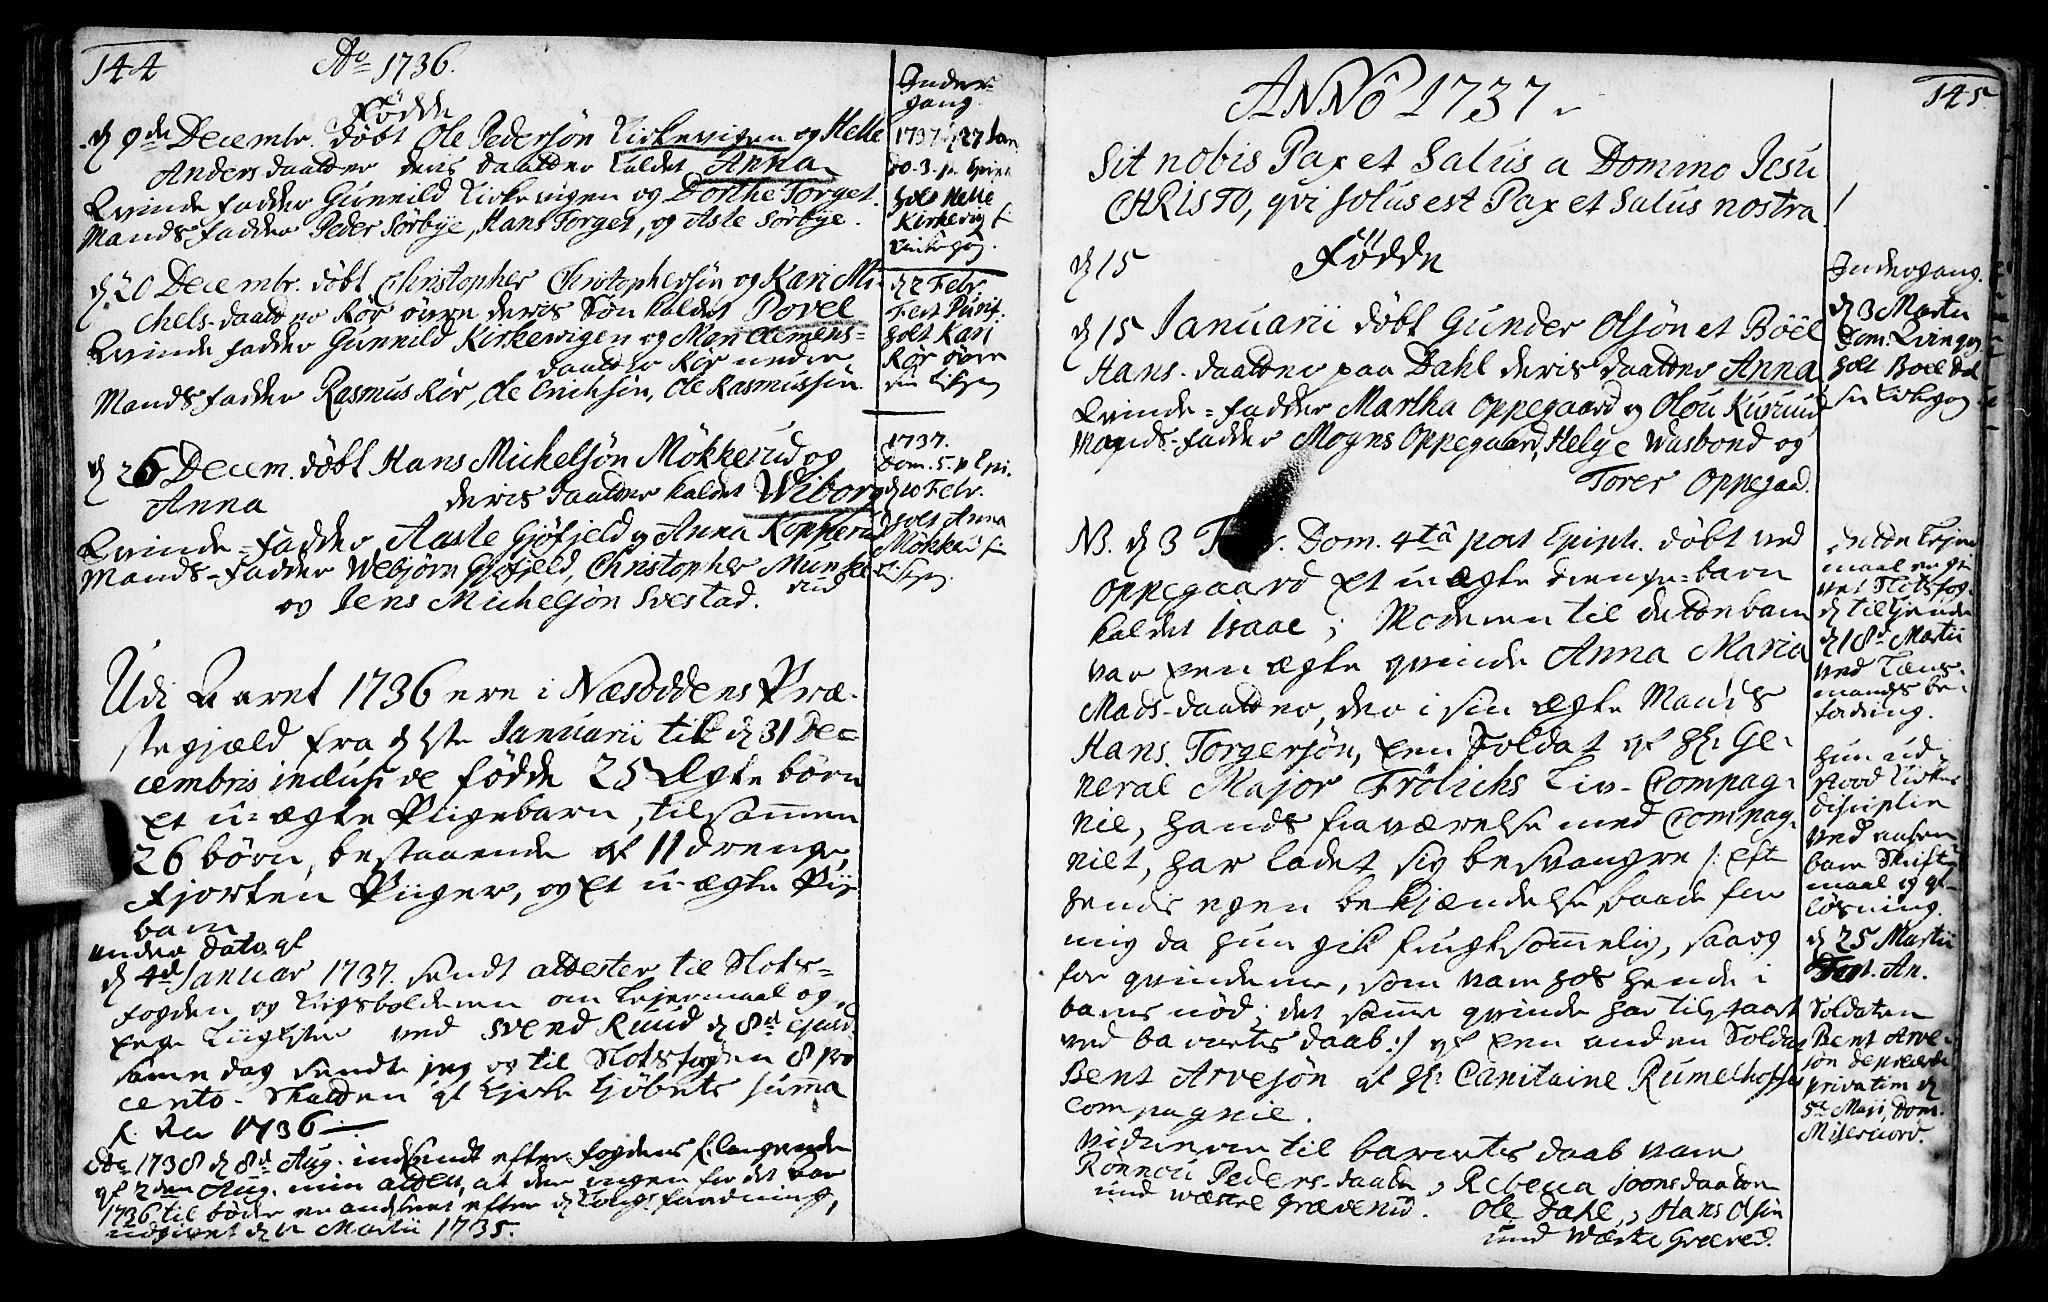 144
Ao 1736.
Fødde
d 9de Decembr. døbt Ole Pedersøn Kirkevigen og Helle
Anders daatter deris daatter kaldet Anna
Kvinde fadder Gunnild Kirkevigen og Dorthe Torget.
Mands fadder Peder Sørbye, Hans Torget, og Aste Sørbye.
d. 20 Decembr. døbt Christopher Christophersøn og Kari Mi-
chels-daatter Rør øvre deris Søn kaldet Povel
Kvinde fadder Gunnild Kirkevigen og Mari Clemens-
daatter Rør nedre
Mands fadder Rasmus Rør, Ole Erichsøn, Ole Rasmussøn
d 26 Decem. døbt Hans Mickelsøn Møkkerud og
Anna deris daatter kaldet Wiborg
Kvinde-fadder Aaste Gjøfjeld og Anna Kopperud
Mands-fadder Webjørn Gjøfjeld, Christopher Munke
rud
og Jens Michelsøn Svestad.
Udi Aaret 1736 ere i Næsoddens Præ-
stegjæld fra d 1ste Januarii til d 31 De-
cembris inclusive fødde 25 Ægte børn
Et u-ægte Piigebarn, tilsammen
26 børn, bestaaende af 11 drenge,
fjorten Piiger, og Et u-ægte Piige
barn
under dato af
d 4de Januar 1737. sendt attester til Slots-
fogden og om Lejermaal og
ved Svend Ruud d 8de ejusd.
samme dag sendte jeg og til Slotsfogden 8 pro
cento-Skatten af Kjøbets summa
for 1736
1738 d 8de Aug. indsendt efter fogdens forlangende
af 2den Aug. min attest, at der ingen for det Aar
1736 til bøder efter d Kongl. forordning,
udgivet d Martii 1735.
Inder-
gang
1737 d 27 Jan
Do. 3. p. Epiph
holt Helle
Kirkevig
Kirkegang.
d 2 Febr.
Fest Purif.
holt Kari
Rør øvre
sin Kirkgang
1737.
Dom. 5. p Epi.
d 10 Febr.
holt Anna
Møkkerud
145
ANNO 1737.
Sit nobis Pax et Salus a Domino Jesu
CHRISTO, qvi solus est Pax et Salus nostra
d 15 Fødde
d 15 Januarii døbt Gunder Olsøn et Boel
Hans-daatter paa Dahl deris daatter Anna
Kvinde-fadder Martha Oppegaard og Olou Kurud
Mands-fadder Mogns Oppegaard, Helge Wasbond og
Torer Oppegaad.
NB. d 3 Febr. Dom. 4ta post Epiph. døbt ved
Oppegaard Et uægte drenge-barn
kaldet Isaac; Moderen til dette barn
var Een ægte qvinde Anna Maria
Mads-daatter, der i sin ægte Mands
Hans Torgersøn, Een Soldat af Hr: Ge-
neral Major Frölichs Liv-Compag-
nie, hands fraværelse med Compag-
niet, har ladet sig besvangre /: Efter
hendes egen bekjændelse baade for
mig da hun gik frugtsommelig, saa og
for qvinderne, som vare hos hende i
barns nød; det samme qvinde har tilstaaet
ved barnets daab :/ af Een anden Soldat
Bent Arvesøn af Hr: Capitaine Rumelhoffs
Compagnie.
Vidnerne til barnets daab vare
Rønnou Peders-daatter, Rebecca Joensdaatter
und wæstre Græverud. Ole Dahl, Hans Olsøn
und Wæstre Græverud.
Indergang.
d 3 Martii
Dom. Qvinqvag
holt Boel Dal
sin Kirkgang
Dette Lejer
maal er gi
vet Slotsfog-
d tilkjende
d 18de Martii
ved Lens-
mands be-
fording.
Hun ud-
stood Kirkens
disciplin
ved aaben
bare Skrifte
maal og af-
løsning.
d 25 Martii
Fest. An.
Soldaten
Bent Arve-
søn
privatim d
5te Maji, Dom.
Misericord.